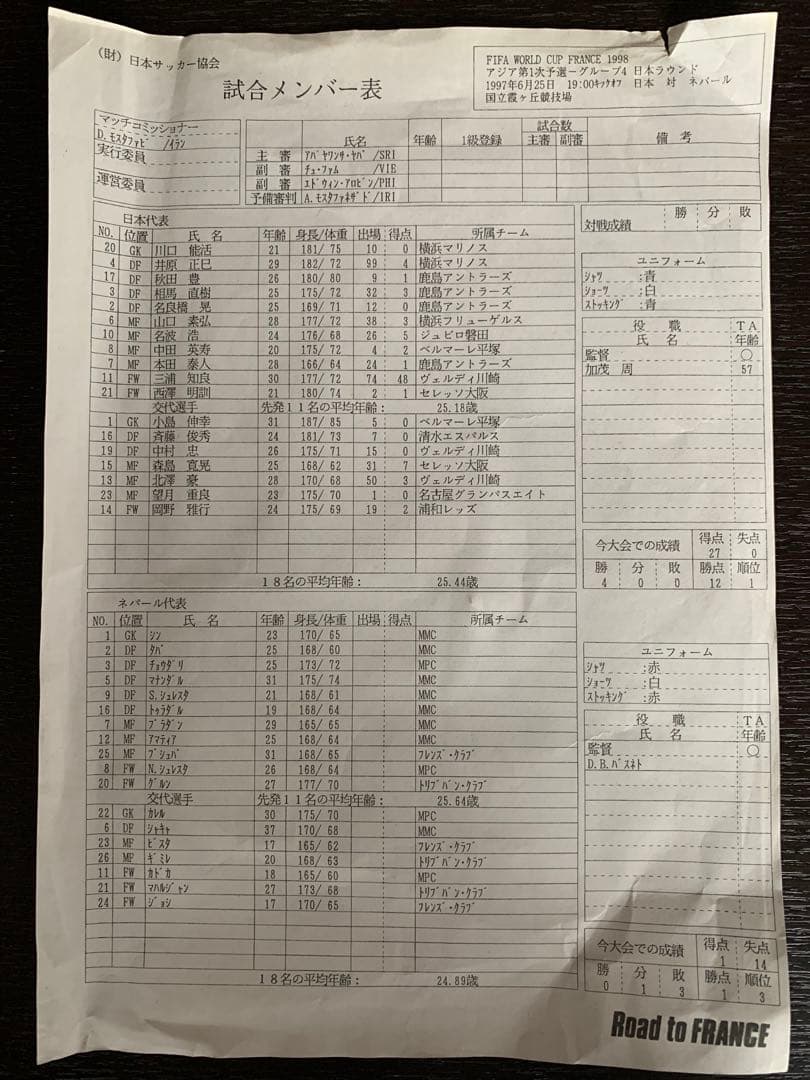 (財)日本サッカー協会
試合メンバー表
FIFA WORLD CUP FRANCE 1998
アジア第1次予選－グループ4 日本ラウンド
1997年6月25日 19:00ｷｯｸｵﾌ 日本 対 ネパール
国立霞ヶ丘競技場
マッチコミッショナー
D.ﾓｽﾀﾌｧﾋﾞ /ｲﾗﾝ
実行委員
運営委員
氏名 年齢 1級登録 試合数 主審 副審 備考
主審 ｱﾊﾞﾔﾜﾝｻ･ﾔﾊﾟ /SRI
副審 ﾁｭ･ﾌｧﾑ /VIE
副審 ｴﾄﾞｳｨﾝ･ｱﾛﾋﾞﾝ/PHI
予備審判 A.ﾓｽﾀﾌｧﾈｻﾞﾄﾞ/IRI
日本代表
NO. 位置 氏名 年齢 身長/体重 出場 得点 所属チーム
20 GK 川口 能活 21 181/ 75 10 0 横浜マリノス
4 DF 井原 正巳 29 182/ 72 99 4 横浜マリノス
17 DF 秋田 豊 26 180/ 80 9 1 鹿島アントラーズ
3 DF 相馬 直樹 25 175/ 72 32 3 鹿島アントラーズ
2 DF 名良橋 晃 25 169/ 71 12 0 鹿島アントラーズ
6 MF 山口 素弘 28 177/ 72 38 3 横浜フリューゲルス
10 MF 名波 浩 24 176/ 68 26 5 ジュビロ磐田
8 MF 中田 英寿 20 175/ 72 4 2 ベルマーレ平塚
7 MF 本田 泰人 28 166/ 64 24 1 鹿島アントラーズ
11 FW 三浦 知良 30 177/ 72 74 48 ヴェルディ川崎
21 FW 西澤 明訓 21 180/ 74 2 1 セレッソ大阪
交代選手 先発11名の平均年齢： 25.18歳
1 GK 小島 伸幸 31 187/ 85 5 0 ベルマーレ平塚
16 DF 斉藤 俊秀 24 181/ 73 7 0 清水エスパルス
19 DF 中村 忠 26 175/ 71 15 0 ヴェルディ川崎
15 MF 森島 寛晃 25 168/ 62 31 7 セレッソ大阪
13 MF 北澤 豪 28 170/ 68 50 3 ヴェルディ川崎
23 MF 望月 重良 23 175/ 70 1 0 名古屋グランパスエイト
14 FW 岡野 雅行 24 175/ 69 19 2 浦和レッズ
18名の平均年齢： 25.44歳
対戦成績 勝 分 敗
ユニフォーム
ｼｬﾂ :青
ｼｮｰﾂ :白
ｽﾄｯｷﾝｸﾞ :青
役職 TA
氏名 年齢
監督 ○
加茂 周 57
今大会での成績 得点 失点
27 0
勝 分 敗 勝点 順位
4 0 0 12 1
ネパール代表
NO. 位置 氏名 年齢 身長/体重 出場 得点 所属チーム
1 GK ｼﾝ 23 170/ 65 MMC
2 DF ﾀﾊﾟ 25 168/ 60 MMC
3 DF ﾁｮｳﾀﾞﾘ 25 173/ 72 MPC
5 DF ﾏﾅﾝﾀﾞﾙ 31 175/ 74 MMC
9 DF S.ｼｭﾚｽﾀ 21 168/ 61 MMC
16 DF ﾄｩﾗﾀﾞﾙ 19 168/ 64 MMC
7 MF ﾌﾟﾗﾀﾞﾝ 29 165/ 65 MMC
12 MF ｱﾏﾃｨｱ 25 168/ 64 MMC
25 MF ﾌﾟｼｭﾊﾟ 31 168/ 65 ﾌﾚﾝｽﾞ･ｸﾗﾌﾞ
8 FW N.ｼｭﾚｽﾀ 26 168/ 64 MPC
20 FW ｸﾞﾙﾝ 27 177/ 70 ﾄﾘﾌﾞﾊﾞﾝ･ｸﾗﾌﾞ
交代選手 先発11名の平均年齢： 25.64歳
22 GK ｶﾚﾙ 30 175/ 70 MPC
6 DF ｼｬｷｬ 37 170/ 68 MMC
23 MF ﾋﾞｽﾀ 17 165/ 62 ﾌﾚﾝｽﾞ･ｸﾗﾌﾞ
26 MF ｷﾞﾐﾚ 20 168/ 63 ﾄﾘﾌﾞﾊﾞﾝ･ｸﾗﾌﾞ
11 FW ｶﾄﾞｶ 18 165/ 60 MPC
21 FW ﾏﾊﾙｼﾞｬﾝ 27 173/ 68 ﾄﾘﾌﾞﾊﾞﾝ･ｸﾗﾌﾞ
24 FW ｼﾞｮｼ 17 170/ 65 ﾌﾚﾝｽﾞ･ｸﾗﾌﾞ
18名の平均年齢： 24.89歳
ユニフォーム
ｼｬﾂ :赤
ｼｮｰﾂ :白
ｽﾄｯｷﾝｸﾞ :赤
役職 TA
氏名 年齢
監督 ○
D.B.ﾊﾞｽﾈﾄ
今大会での成績 得点 失点
1 14
勝 分 敗 勝点 順位
0 1 3 1 3
Road to FRANCE